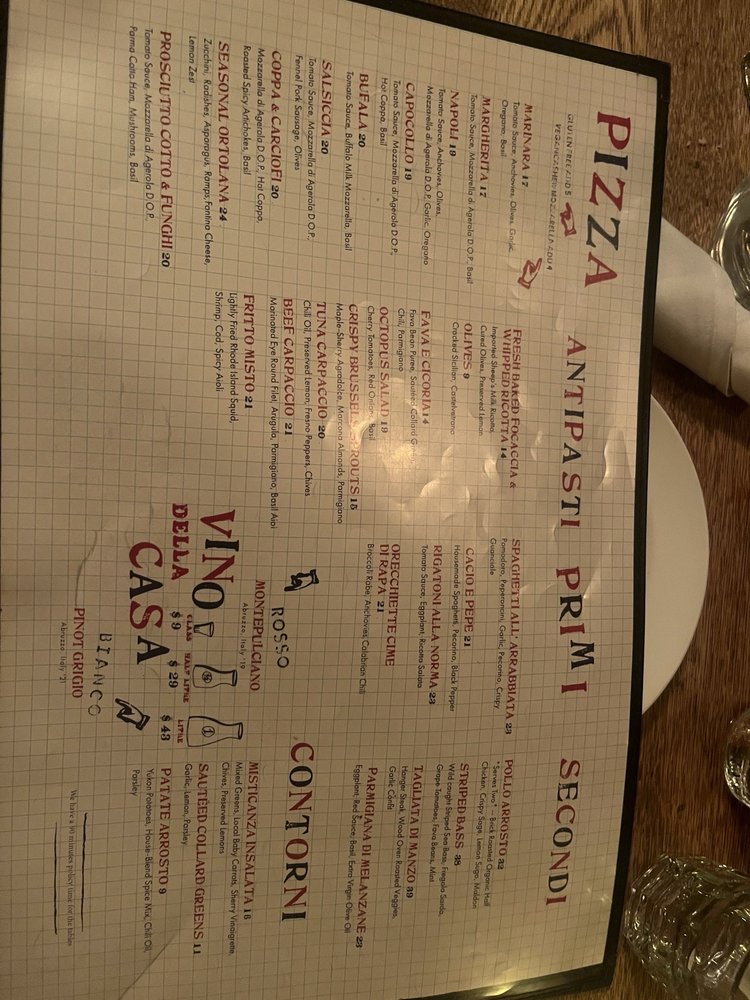 PIZZA
GLUTEN FREE ADD 5
VEGAN CASHEW MOZZARELLA ADD 4
MARINARA 17
Tomato Sauce, Anchovies, Olives, Garlic,
Oregano, Basil
MARGHERITA 17
Tomato Sauce, Mozzarella di Agerola D.O.P., Basil
NAPOLI 19
Tomato Sauce, Anchovies, Olives,
Mozzarella di Agerola D.O.P, Garlic, Oregano
CAPOCOLLO 19
Tomato Sauce, Mozzarella di Agerola D.O.P.,
Hot Coppa, Basil
BUFALA 20
Tomato Sauce, Buffalo Milk Mozzarella, Basil
SALSICCIA 20
Tomato Sauce, Mozzarella di Agerola D.O.P.,
Fennel Pork Sausage, Olives
COPPA & CARCIOFI 20
Mozzarella di Agerola D.O.P., Hot Coppa,
Roasted Spicy Artichokes, Basil
SEASONAL ORTOLANA 24
Zucchini, Radishes, Asparagus, Ramps, Fontina Cheese,
Lemon Zest
PROSCIUTTO COTTO & FUNGHI 20
Tomato Sauce, Mozzarella di Agerola D.O.P.,
Parma Cotto Ham, Mushrooms, Basil
ANTIPASTI
FRESH BAKED FOCACCIA &
WHIPPED RICOTTA 14
Imported Sheep's Milk Ricotta,
Cured Olives, Preserved Lemon
OLIVES 9
Cracked Sicilian, Castelvetrano
FAVA E CICORIA 14
Fava Bean Puree, Sautéed Collard Greens,
Chili, Parmigiano
OCTOPUS SALAD 19
Cherry Tomatoes, Red Onion, Basil
CRISPY BRUSSEL SPROUTS 15
Maple-Sherry Agrodolce, Marcona Almonds, Parmigiano
TUNA CARPACCIO 20
Chili Oil, Preserved Lemon, Fresno Peppers, Chives
BEEF CARPACCIO 21
Marinated Eye Round Filet, Arugula, Parmigiano, Basil Aioi
FRITTO MISTO 21
Lightly Fried Rhode Island Squid,
Shrimp, Cod, Spicy Aioli
PRIMI
SPAGHETTI ALL' ARRABBIATA 23
Pomodoro, Peperoncini, Garlic, Pecorino, Crispy
Guanciale
CACIO E PEPE 21
Housemade Spaghetti, Pecorino, Black Pepper
RIGATONI ALLA NORMA 23
Tomato Sauce, Eggplant, Ricotta Salata
ORECCHIETTE CIME
DI RAPA 21
Broccoli Rabe, Anchovies, Calabrian Chili
SECONDI
POLLO ARROSTO 32
*Serves Two* – Brick Roasted Organic Half
Chicken, Crispy Sage, Lemon Sugo, Maldon
STRIPED BASS 38
Wild caught Striped Sea Bass, Fregola Sarda,
Grape Tomatoes, Fava Beans, Mint
TAGLIATA DI MANZO 39
Hanger Steak, Wood Oven Roasted Veggies,
Garlic Confit
PARMIGIANA DI MELANZANE 23
Eggplant, Red Sauce, Basil, Extra-Virgin Olive Oil
VINO
DELLA
CASA
ROSSO
MONTEPULCIANO
Abruzzo, Italy '19
GLASS HALF LITRE LITRE
$9 $29 $43
BIANCO
PINOT GRIGIO
Abruzzo, Italy '21
CONTORNI
MISTICANZA INSALATA 16
Mixed Greens, Local Baby Carrots, Sherry Vinaigrette,
Chives, Preserved Lemons
SAUTÉED COLLARD GREENS 11
Garlic, Lemon, Parsley
PATATE ARROSTO 9
Yukon Potatoes, House-Blend Spice Mix, Chili Oil,
Parsley
We have a 90 minutes policy time for the tables